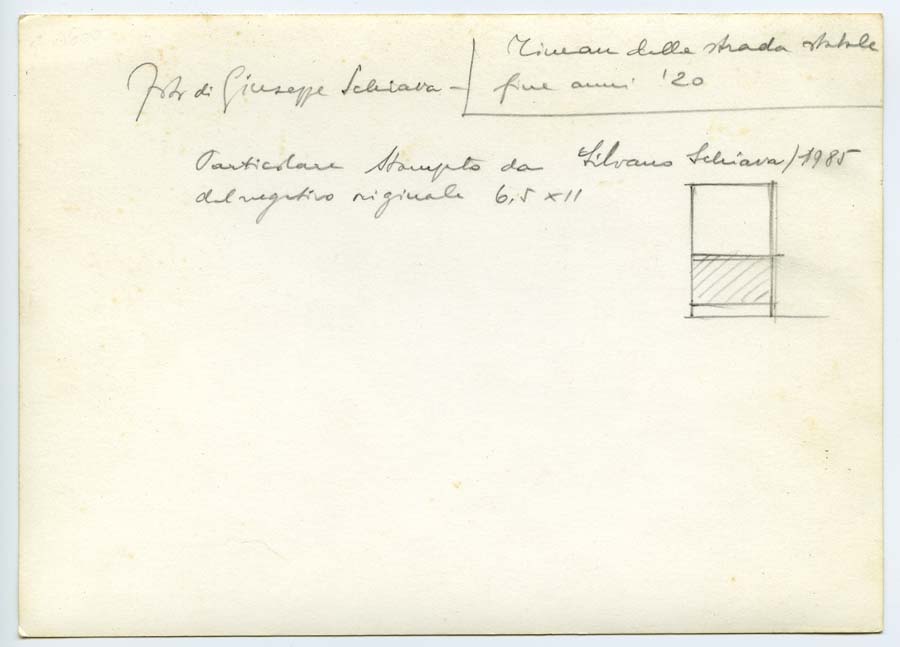 Timau dalla strada statale
Foto di Giuseppe Schiava –
fine anni '20
Particolare stampato da Silvano Schiava / 1985
dal negativo originale 6,5 x 11